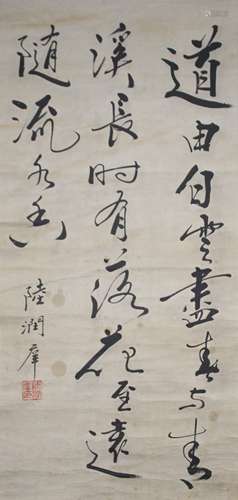 道由白雲盡春与青
溪長时有落花至遠
随流水香
陸潤庠